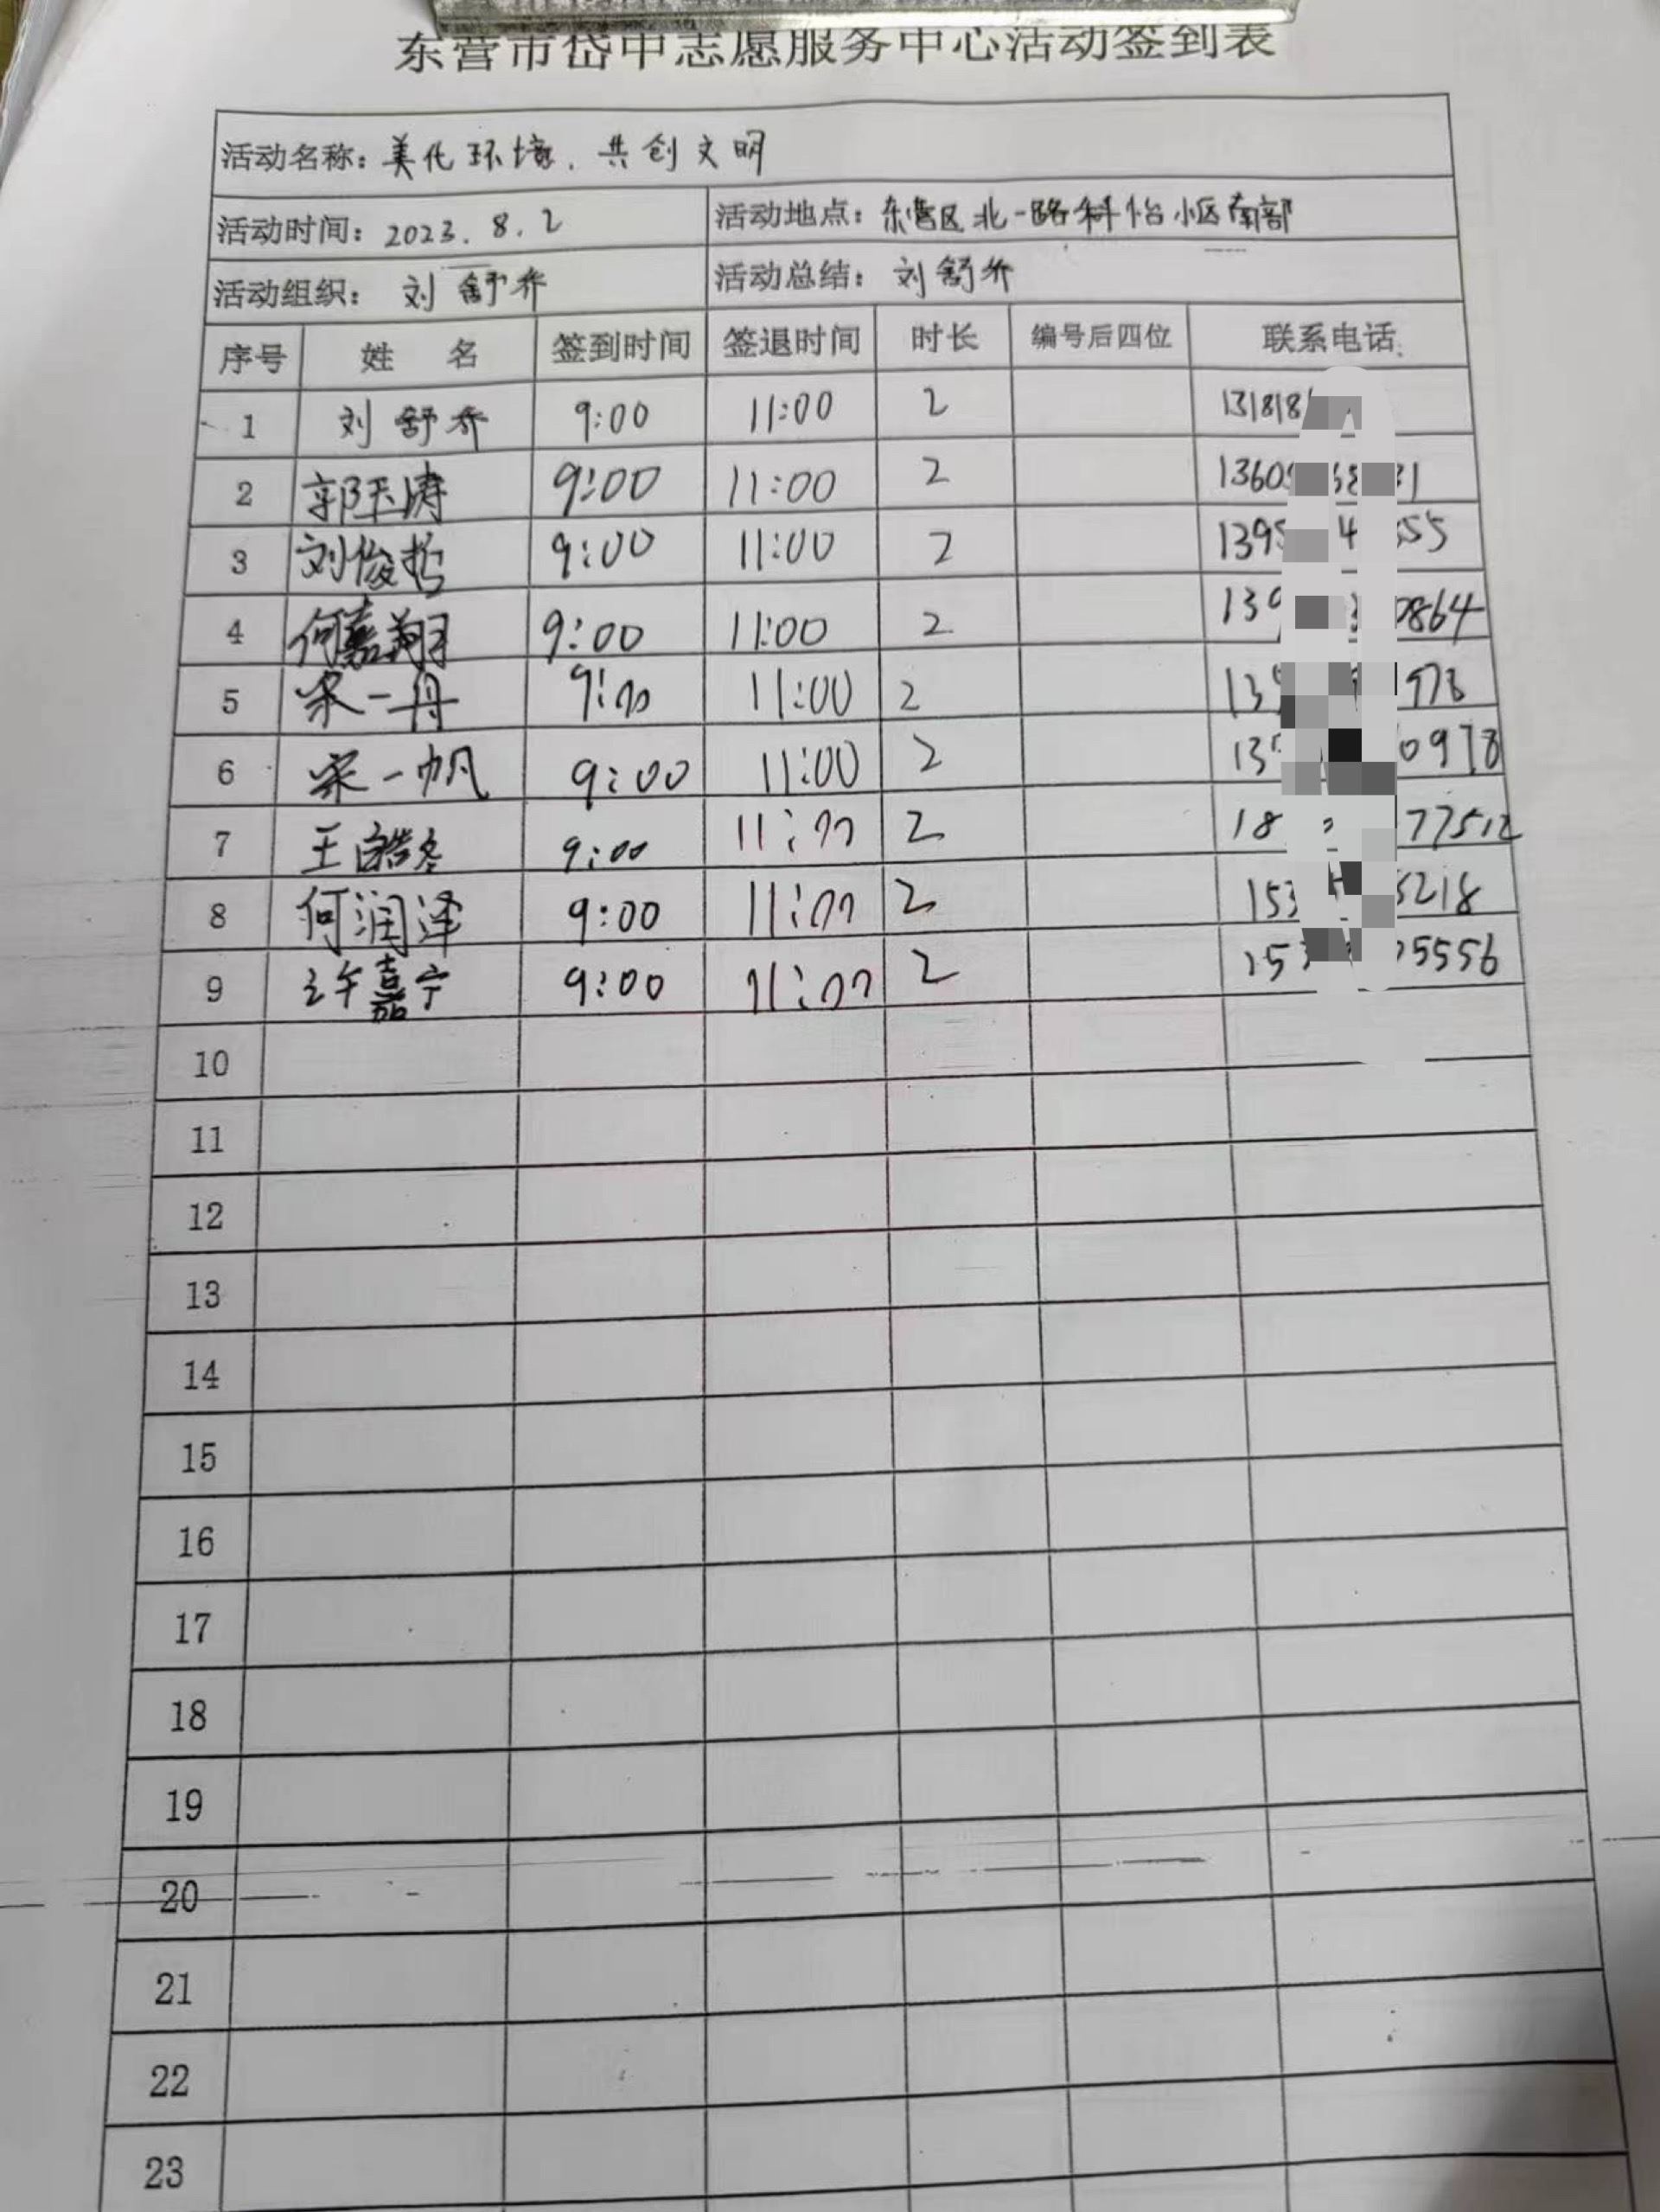 东营市岱中志愿服务中心活动签到表
活动名称：美化环境，共创文明
活动时间：2023.8.2 活动地点：东营区北一路科怡小区南部
活动组织：刘舒乔 活动总结：刘舒乔
序号 姓 名 签到时间 签退时间 时长 编号后四位 联系电话
1 刘舒乔 9:00 11:00 2 13181
2 郭玉涛 9:00 11:00 2 1360
3 刘俊哲 9:00 11:00 2 139 4 55
4 何嘉翔 9:00 11:00 2 139 0864
5 宋一丹 9:00 11:00 2 13 978
6 宋一帆 9:00 11:00 2 13 0978
7 王皓冬 9:00 11:00 2 18 77512
8 何润泽 9:00 11:00 2 153 218
9 许嘉宁 9:00 11:00 2 153 5556
10
11
12
13
14
15
16
17
18
19
20
21
22
23